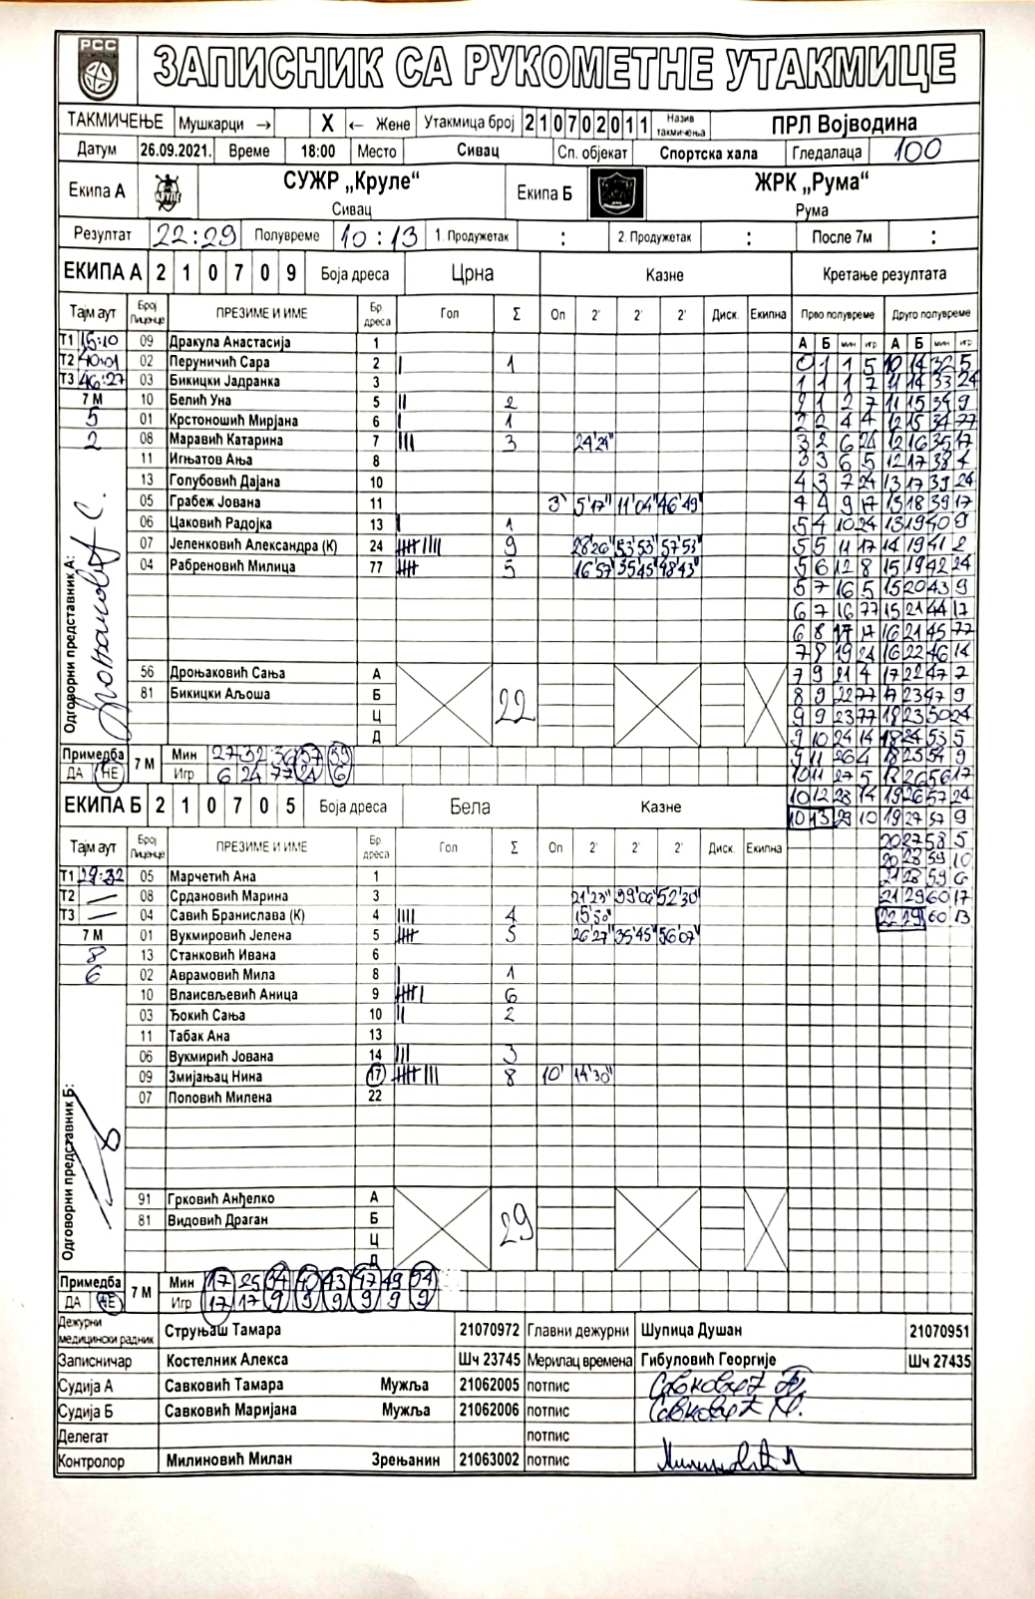 РСС
ЗАПИСНИК СА РУКОМЕТНЕ УТАКМИЦЕ
ТАКМИЧЕЊЕ Мушкарци → X ← Жене Утакмица број 210702011 Назив такмичења ПРЛ Војводина
Датум 26.09.2021. Време 18:00 Место Сивац Сп. објекат Спортска хала Гледалаца 100
Екипа А СУЖР „Круле“ Сивац Екипа Б ЖРК „Рума“ Рума
Резултат 22:29 Полувреме 10:13 1. Продужетак : 2. Продужетак : После 7м :
ЕКИПА А 2 1 0 7 0 9 Боја дреса Црна Казне Кретање резултата
Тајм аут Број Лиценце ПРЕЗИМЕ И ИМЕ Бр. дреса Гол Σ Оп 2' 2' 2' Диск. Екипна Прво полувреме Друго полувреме
Т1 15:10 09 Дракула Анастасија 1 А Б мин игр А Б мин игр
Т2 40:01 02 Перуничић Сара 2 | 1 0 1 1 5 10 14 32 5
Т3 46:27 03 Бикицки Јадранка 3 1 1 1 7 11 14 33 24
7 М 10 Белић Уна 5 || 2 2 1 2 7 11 15 34 9
5 01 Крстоношић Мирјана 6 | 1 2 2 4 4 12 15 34 77
2 08 Маравић Катарина 7 ||| 3 24'24" 3 2 6 24 12 16 35 17
11 Игњатов Ања 8 3 3 6 5 12 17 38 4
13 Голубовић Дајана 10 4 3 7 24 13 17 39 24
05 Грабеж Јована 11 3' 5'17" 11'04" 46'49" 4 4 9 17 13 18 39 17
06 Цаковић Радојка 13 | 1 5 4 10 24 13 19 40 9
07 Јеленковић Александра (К) 24 9 28'26" 53'53" 57'53" 5 5 11 17 14 19 41 2
04 Рабреновић Милица 77 5 16'57" 35'45" 48'43" 5 6 12 8 15 19 42 24
5 7 16 5 15 20 43 9
6 7 16 77 15 21 44 17
6 8 17 17 16 21 45 77
7 8 19 24 16 22 46 14
56 Дроњаковић Сања А 7 9 21 4 17 22 47 7
81 Бикицки Аљоша Б 22 8 9 22 77 17 23 47 9
Ц 9 9 23 77 18 23 50 24
Д 9 10 24 14 18 24 53 5
Примедба ДА НЕ 7 М Мин 27 32 36 57 59 9 11 26 4 18 25 54 9
Игр 6 24 77 24 6 10 11 27 5 18 26 56 17
ЕКИПА Б 2 1 0 7 0 5 Боја дреса Бела Казне 10 12 28 14 19 26 57 24
10 13 29 10 19 27 57 9
Тајм аут Број Лиценце ПРЕЗИМЕ И ИМЕ Бр. дреса Гол Σ Оп 2' 2' 2' Диск. Екипна 20 27 58 5
20 28 59 10
Т1 29:32 05 Марчетић Ана 1 21 28 59 6
Т2 — 08 Срдановић Марина 3 21'23" 39'06" 52'30" 21 29 60 17
Т3 — 04 Савић Бранислава (К) 4 |||| 4 15'50" 22 29 60 13
7 М 01 Вукмировић Јелена 5 5 26'27" 35'45" 56'07"
8 13 Станковић Ивана 6
6 02 Аврамовић Мила 8 | 1
10 Влаисвљевић Аница 9 6
03 Ђокић Сања 10 || 2
11 Табак Ана 13
06 Вукмирић Јована 14 ||| 3
09 Змијањац Нина 17 8 10' 14'30"
07 Поповић Милена 22
91 Грковић Анђелко А
81 Видовић Драган Б 29
Ц
Д
Примедба ДА НЕ 7 М Мин 17 25 34 40 43 47 49 54
Игр 17 17 9 9 9 9 9 9
Одговорни представник А:
Одговорни представник Б:
Дежурни медицински радник Струњаш Тамара 21070972 Главни дежурни Шупица Душан 21070951
Записничар Костелник Алекса Шч 23745 Мерилац времена Гибуловић Георгије Шч 27435
Судија А Савковић Тамара Мужља 21062005 потпис Савковић Т.
Судија Б Савковић Маријана Мужља 21062006 потпис Савковић М.
Делегат потпис
Контролор Милиновић Милан Зрењанин 21063002 потпис Милиновић М